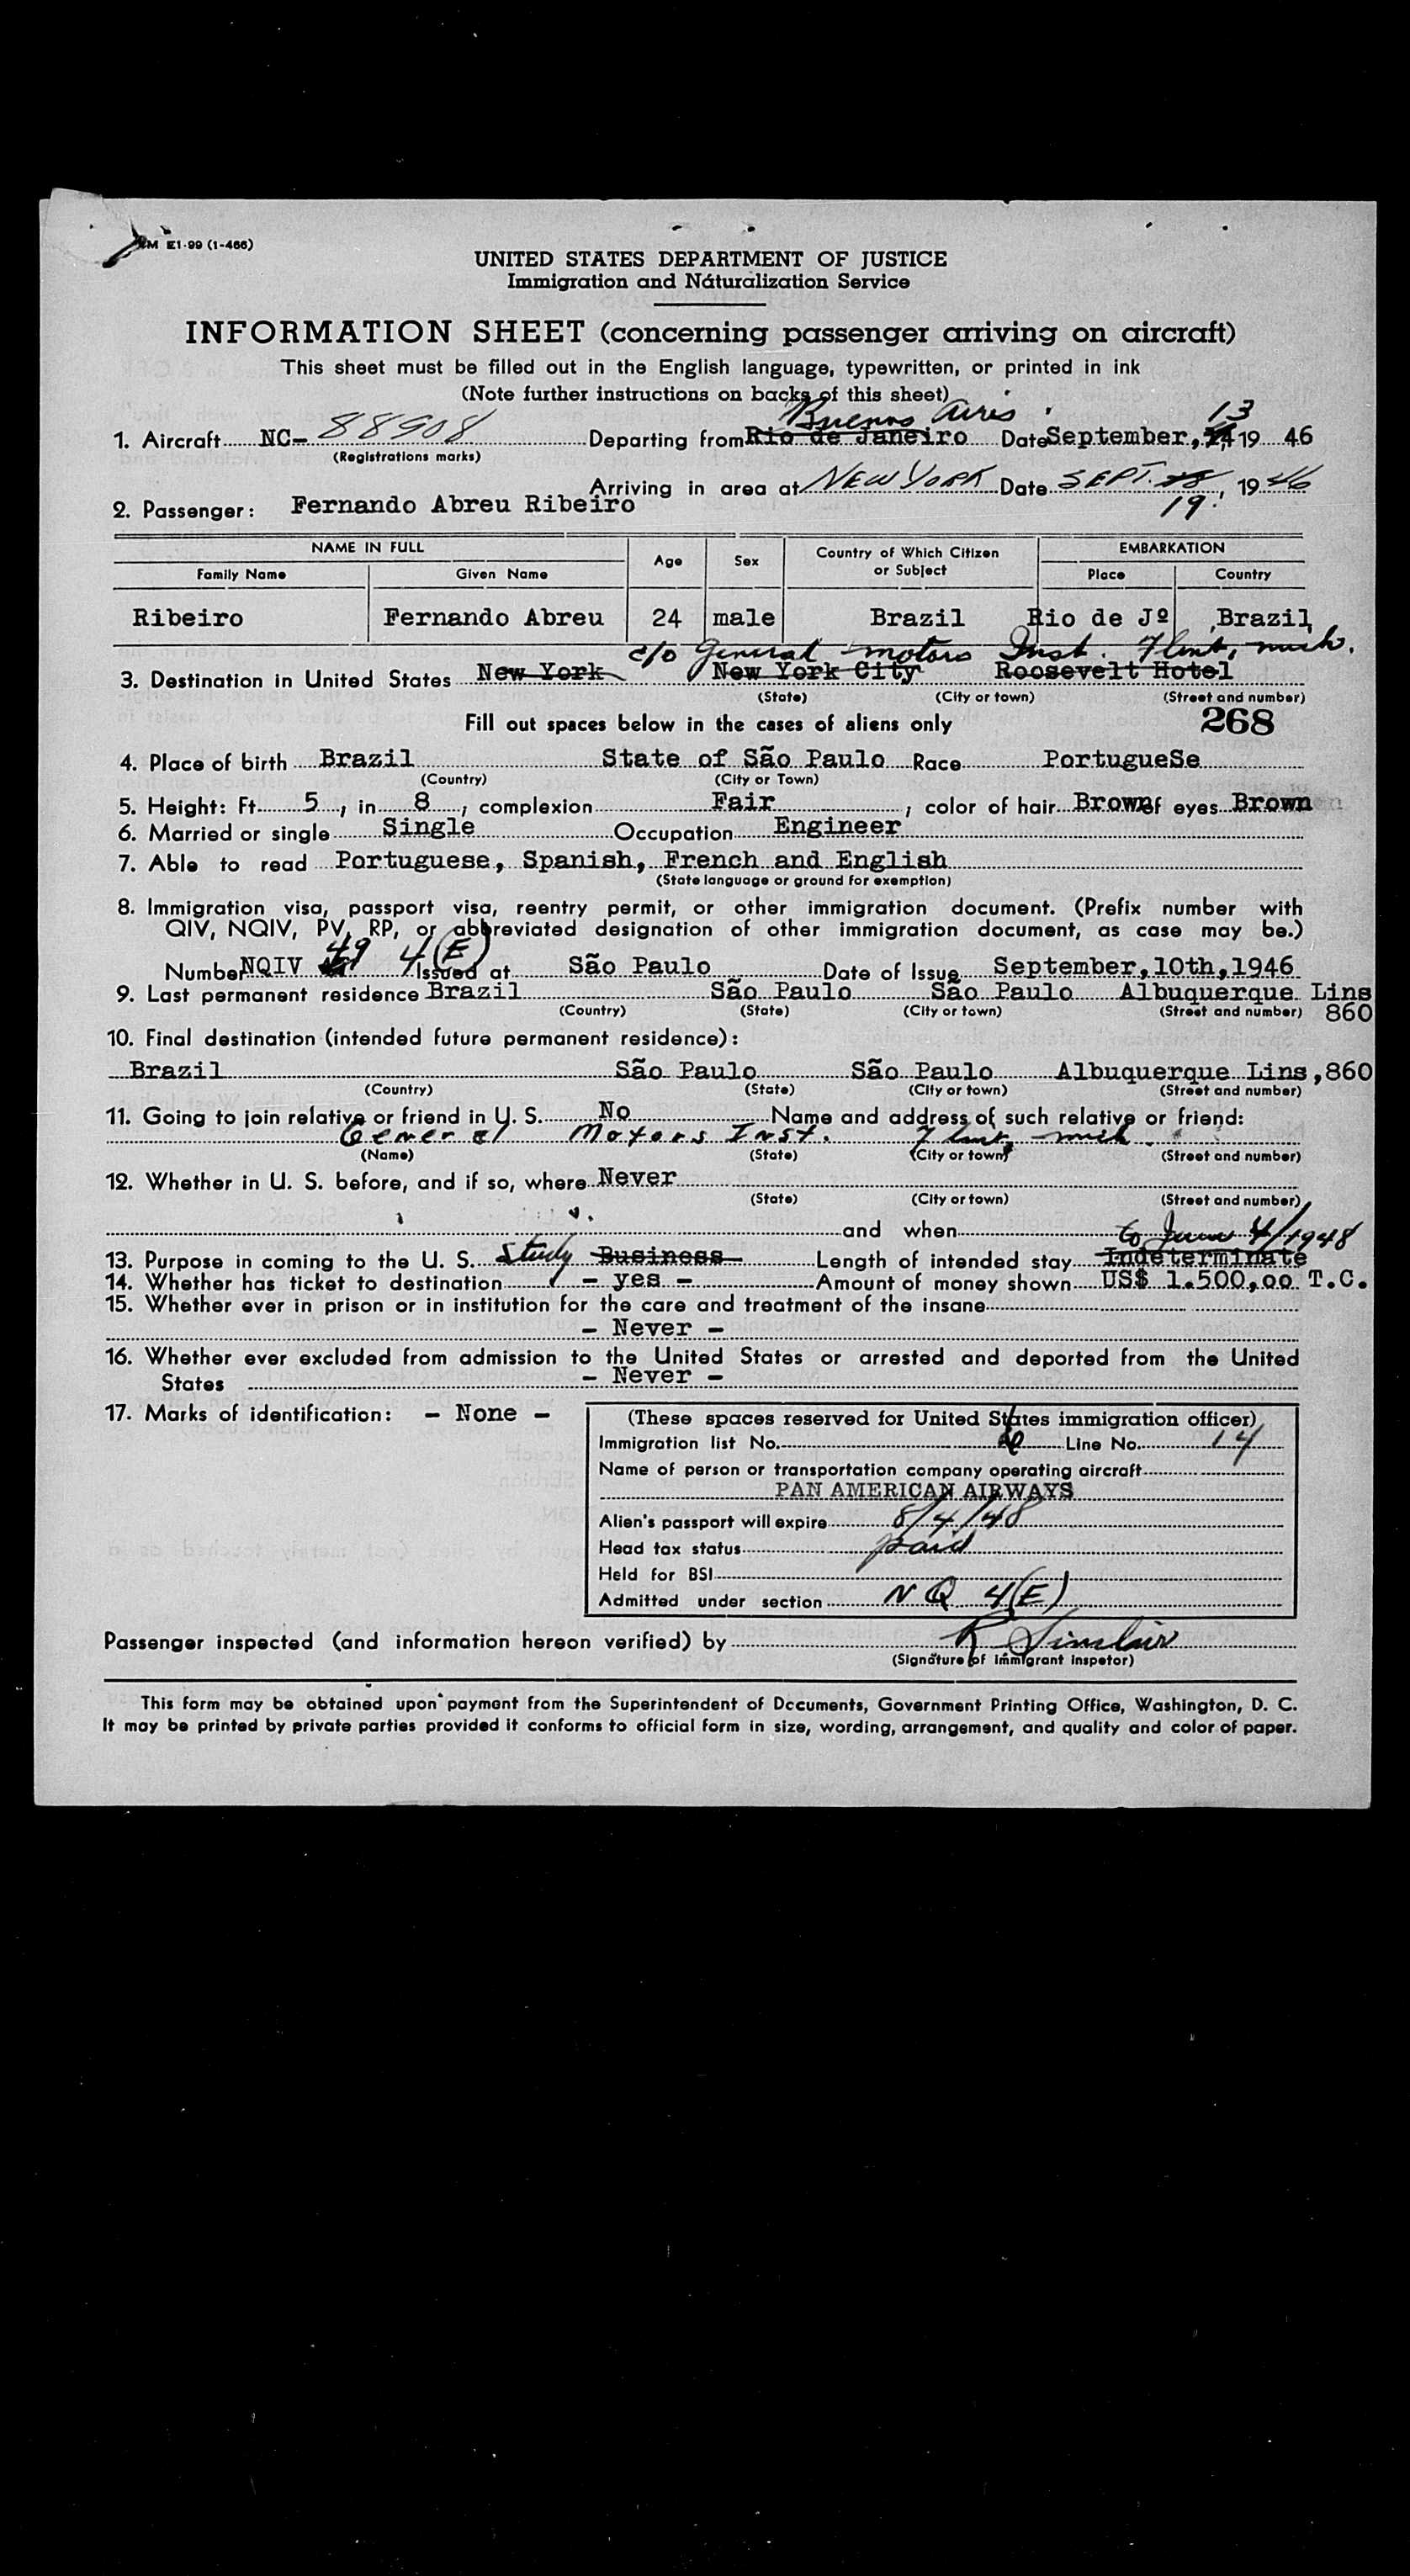 FM E1-99 (1-466)
UNITED STATES DEPARTMENT OF JUSTICE
Immigration and Naturalization Service
INFORMATION SHEET (concerning passenger arriving on aircraft)
This sheet must be filled out in the English language, typewritten, or printed in ink
(Note further instructions on backs of this sheet)
Buenos Aires 13
1. Aircraft NC- 88908 Departing from Rio de Janeiro Date September, 14 19 46
(Registrations marks)
Arriving in area at NEW YORK Date SEPT. 18, 19 46
19.
2. Passenger: Fernando Abreu Ribeiro
NAME IN FULL Age Sex Country of Which Citizen or Subject EMBARKATION
Family Name Given Name Place Country
Ribeiro Fernando Abreu 24 male Brazil Rio de Jº Brazil
c/o General Motors Inst. Flint, Mich.
3. Destination in United States New York New York City Roosevelt Hotel
(State) (City or town) (Street and number)
Fill out spaces below in the cases of aliens only 268
4. Place of birth Brazil State of São Paulo Race PortugueSe
(Country) (City or Town)
5. Height: Ft. 5, in 8, complexion Fair, color of hair Brown of eyes Brown
6. Married or single Single Occupation Engineer
7. Able to read Portuguese, Spanish, French and English
(State language or ground for exemption)
8. Immigration visa, passport visa, reentry permit, or other immigration document. (Prefix number with
QIV, NQIV, PV, RP, or abbreviated designation of other immigration document, as case may be.)
Number NQIV 49 4(E) Issued at São Paulo Date of Issue September, 10th, 1946
9. Last permanent residence Brazil São Paulo São Paulo Albuquerque Lins
(Country) (State) (City or town) (Street and number) 860
10. Final destination (intended future permanent residence):
Brazil São Paulo São Paulo Albuquerque Lins, 860
(Country) (State) (City or town) (Street and number)
11. Going to join relative or friend in U. S. No Name and address of such relative or friend:
General Motors Inst. Flint, Mich.
(Name) (State) (City or town) (Street and number)
12. Whether in U. S. before, and if so, where Never
(State) (City or town) (Street and number)
and when
to June 4/1948
13. Purpose in coming to the U. S. Study Business Length of intended stay Indeterminate
14. Whether has ticket to destination - yes - Amount of money shown US$ 1.500,00 T.C.
15. Whether ever in prison or in institution for the care and treatment of the insane
- Never -
16. Whether ever excluded from admission to the United States or arrested and deported from the United
States - Never -
17. Marks of identification: - None -
(These spaces reserved for United States immigration officer)
Immigration list No. Line No. 14
Name of person or transportation company operating aircraft
PAN AMERICAN AIRWAYS
Alien's passport will expire 8/4/48
Head tax status paid
Held for BSI
Admitted under section NQ 4(E)
Passenger inspected (and information hereon verified) by R Sinclair
(Signature of Immigrant Inspetor)
This form may be obtained upon payment from the Superintendent of Documents, Government Printing Office, Washington, D. C.
It may be printed by private parties provided it conforms to official form in size, wording, arrangement, and quality and color of paper.